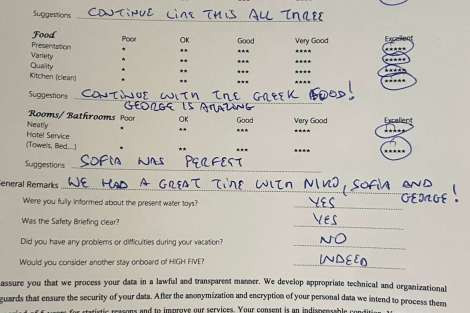 Suggestions CONTINUE LIKE THIS ALL THREE
Food Poor OK Good Very Good Excellent
Presentation * ** *** **** *****
Variety * ** *** **** *****
Quality * ** *** **** *****
Kitchen (clean) * ** *** **** *****
Suggestions CONTINUE WITH THE GREEK FOOD!
GEORGE IS AMAZING
Rooms/ Bathrooms Poor OK Good Very Good Excellent
Neatly * ** *** **** *****
Hotel Service
(Towels, Bed...) * ** *** **** *****
Suggestions SOFIA WAS PERFECT
General Remarks WE HAD A GREAT TIME WITH NIKO, SOFIA AND
GEORGE!
Were you fully informed about the present water toys? YES
Was the Safety Briefing clear? YES
Did you have any problems or difficulties during your vacation? NO
Would you consider another stay onboard of HIGH FIVE? INDEED
assure you that we process your data in a lawful and transparent manner. We develop appropriate technical and organizational
guards that ensure the security of your data. After the anonymization and encryption of your personal data we intend to process them
for statistic reasons and to improve our services. Your consent is an indispensable condition.